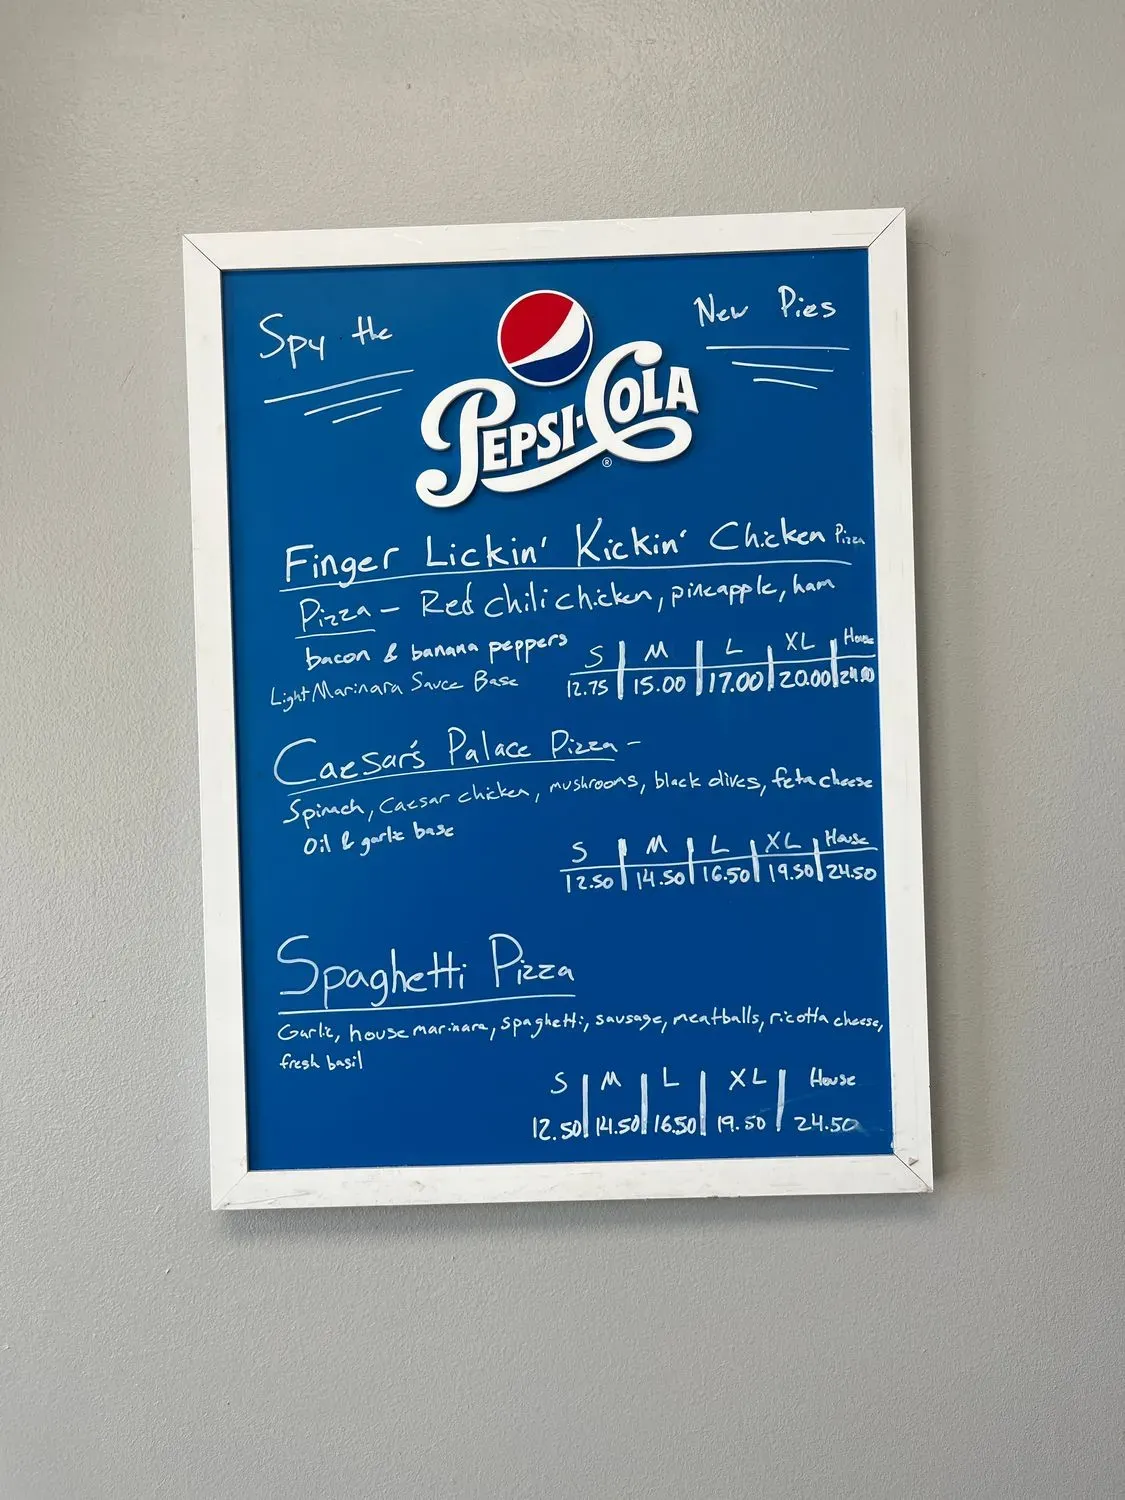 Spy the New Pies
PEPSI-COLA
®
Finger Lickin' Kickin' Chicken Pizza
Pizza - Red chili chicken, pineapple, ham
bacon & banana peppers
Light Marinara Sauce Base
S M L XL House
12.75 15.00 17.00 20.00
Caesar's Palace Pizza -
Spinach, Caesar chicken, mushrooms, black olives, feta cheese
Oil & garlic base
S M L XL House
12.50 14.50 16.50 19.50 24.50
Spaghetti Pizza
Garlic, house marinara, spaghetti, sausage, meatballs, ricotta cheese,
fresh basil
S M L XL House
12.50 14.50 16.50 19.50 24.50